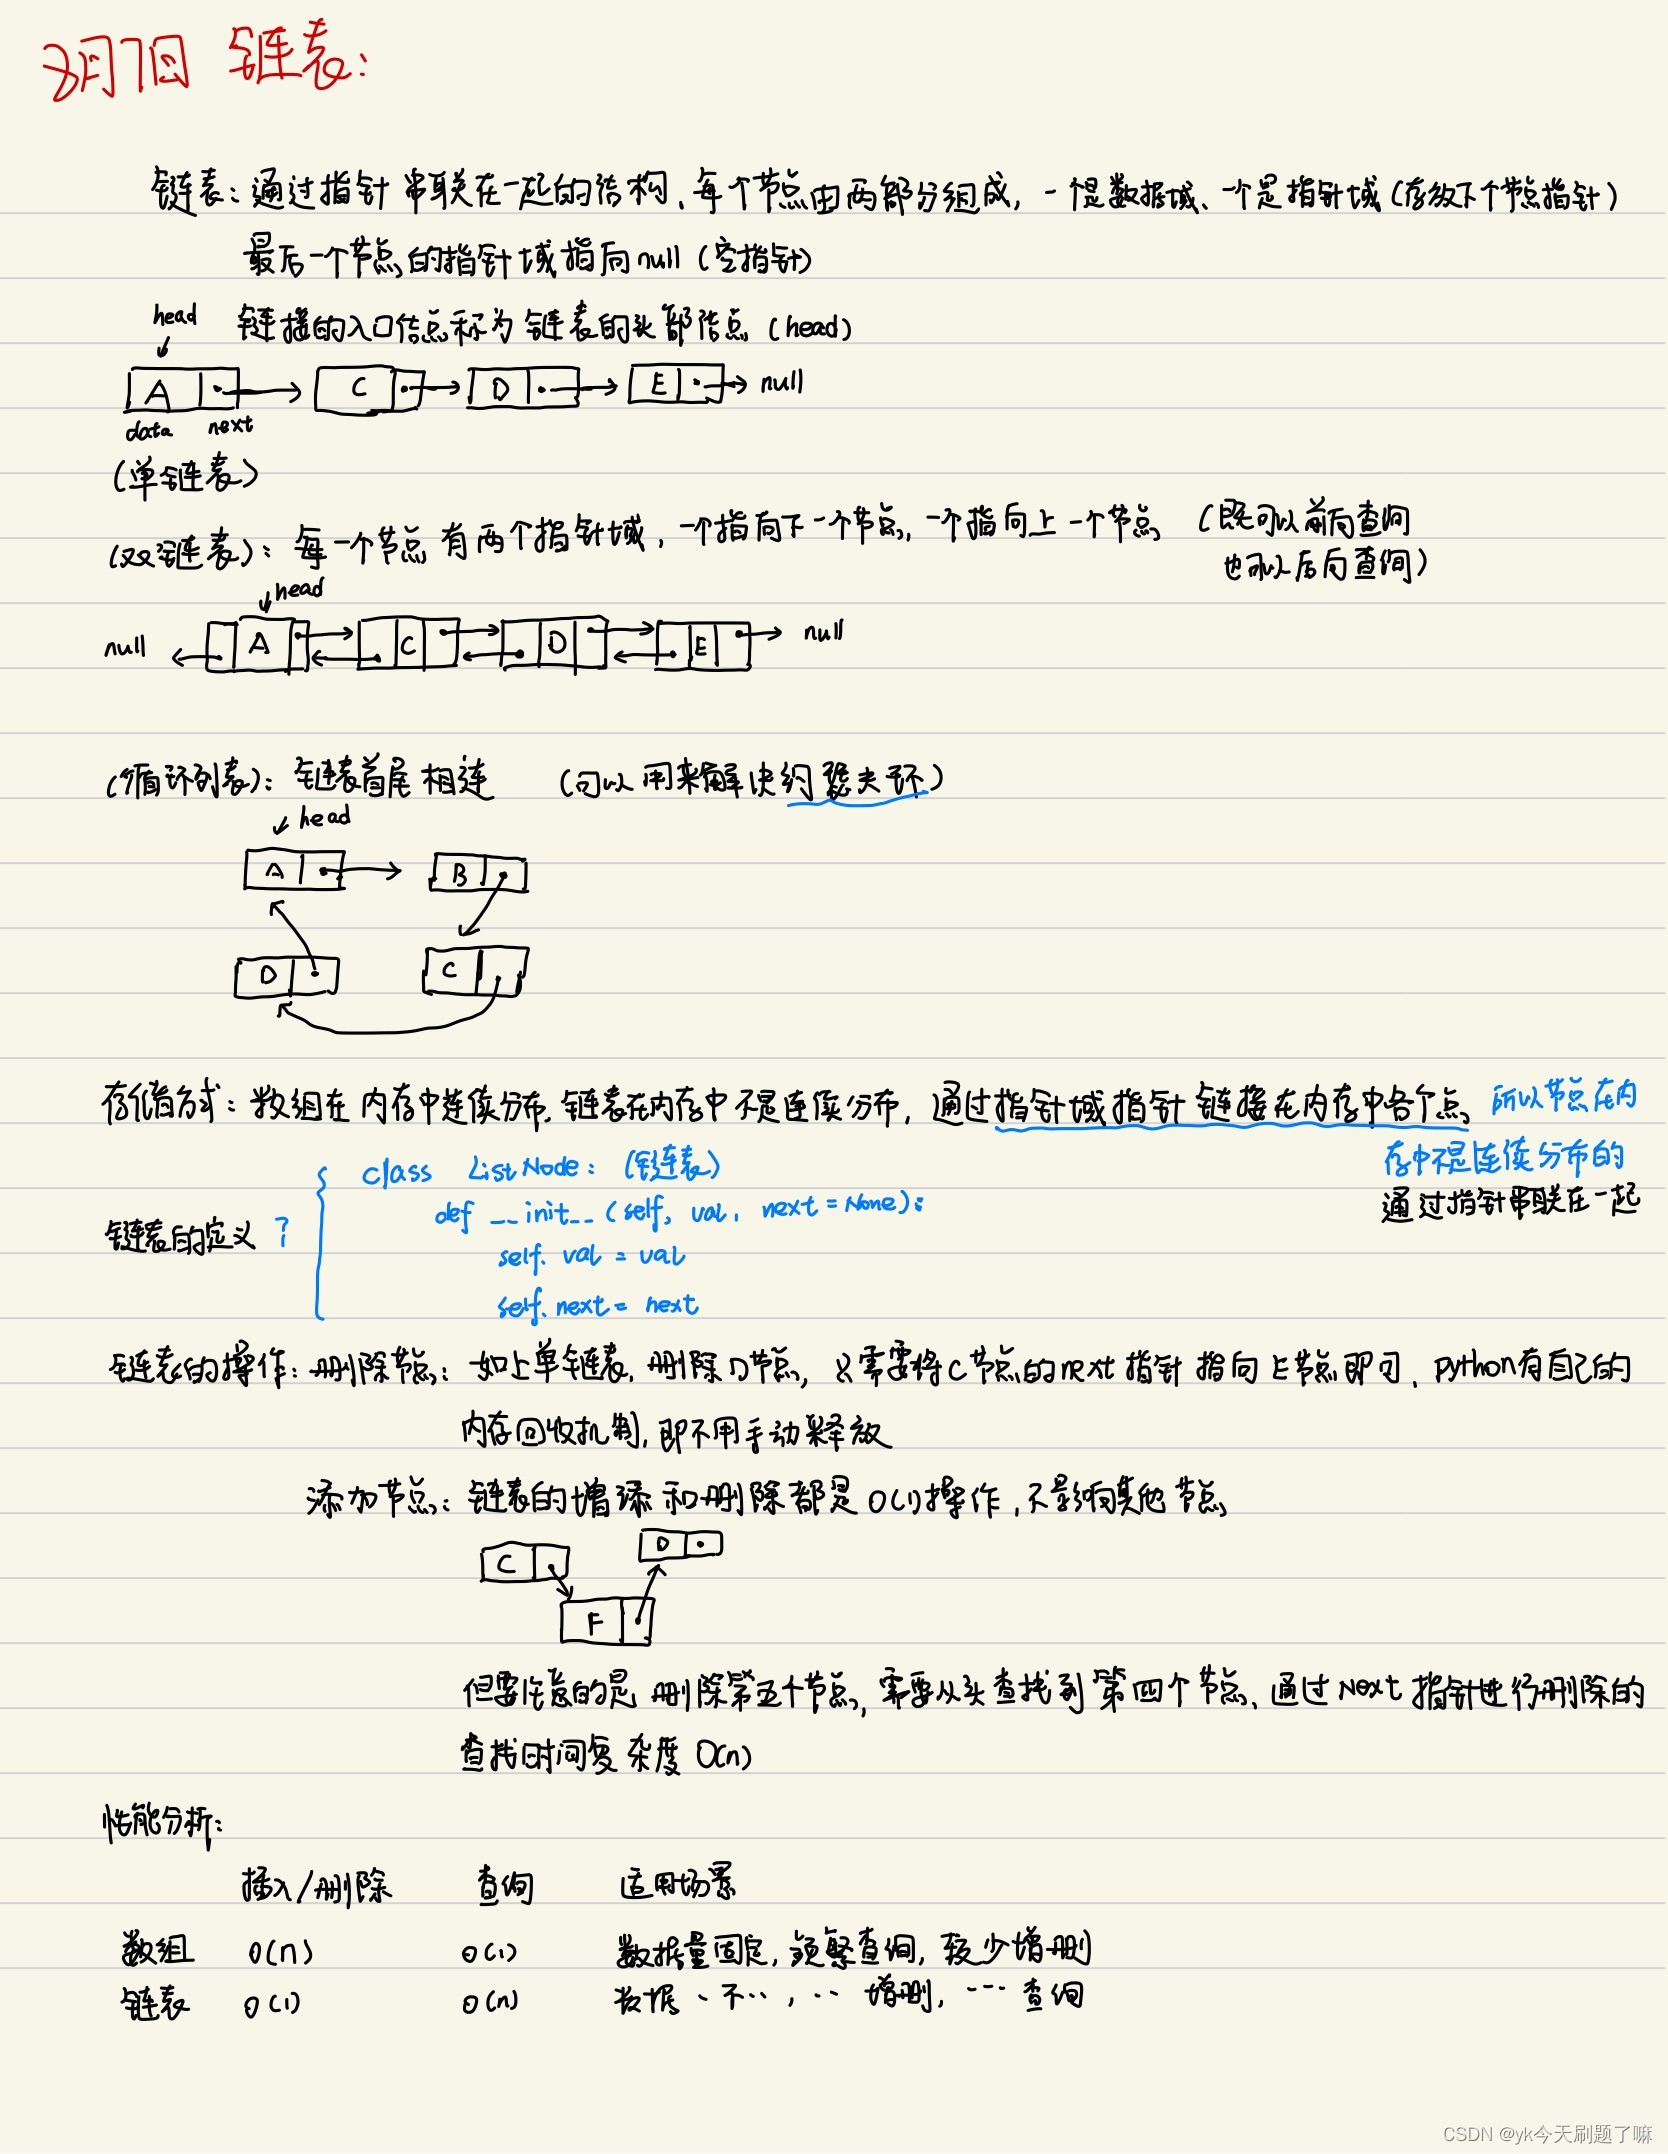 3月7日 链表:
链表:通过指针串联在一起的结构、每个节点由两部分组成,一个是数据域、一个是指针域(存放下个节点指针)
最后一个节点的指针域指向null(空指针)
head 链接的入口节点称为链表的头部节点(head)
A C D E null
data next
(单链表)
(双链表):每一个节点有两个指针域,一个指向下一个节点,一个指向上一个节点 (既可以前向查询
也可以后向查询)
head
null A C D E null
(循环列表):链表首尾相连 (可以用来解决约瑟夫环)
head
A B
D C
存储方式:数组在内存中连续分布.链表在内存中不是连续分布,通过指针域指针链接在内存中各个点 所以节点在内
存中不是连续分布的
通过指针串联在一起
链表的定义?
class ListNode: (链表)
def __init__(self, val, next=None):
self.val = val
self.next = next
链表的操作:删除节点:如上单链表.删除D节点,只需要将C节点的next指针指向E节点即可.python有自己的
内存回收机制,即不用手动释放
添加节点:链表的增添和删除都是O(1)操作,不影响其他节点
C D
F
但要注意的是 删除第五个节点,需要从头查找到第四个节点、通过next指针进行删除的
查找时间复杂度 O(n)
性能分析:
插入/删除 查询 适用场景
数组 O(n) O(1) 数据量固定,频繁查询,较少增删
链表 O(1) O(n) 数据、不‥,‥增删,…查询
CSDN @yk今天刷题了嘛